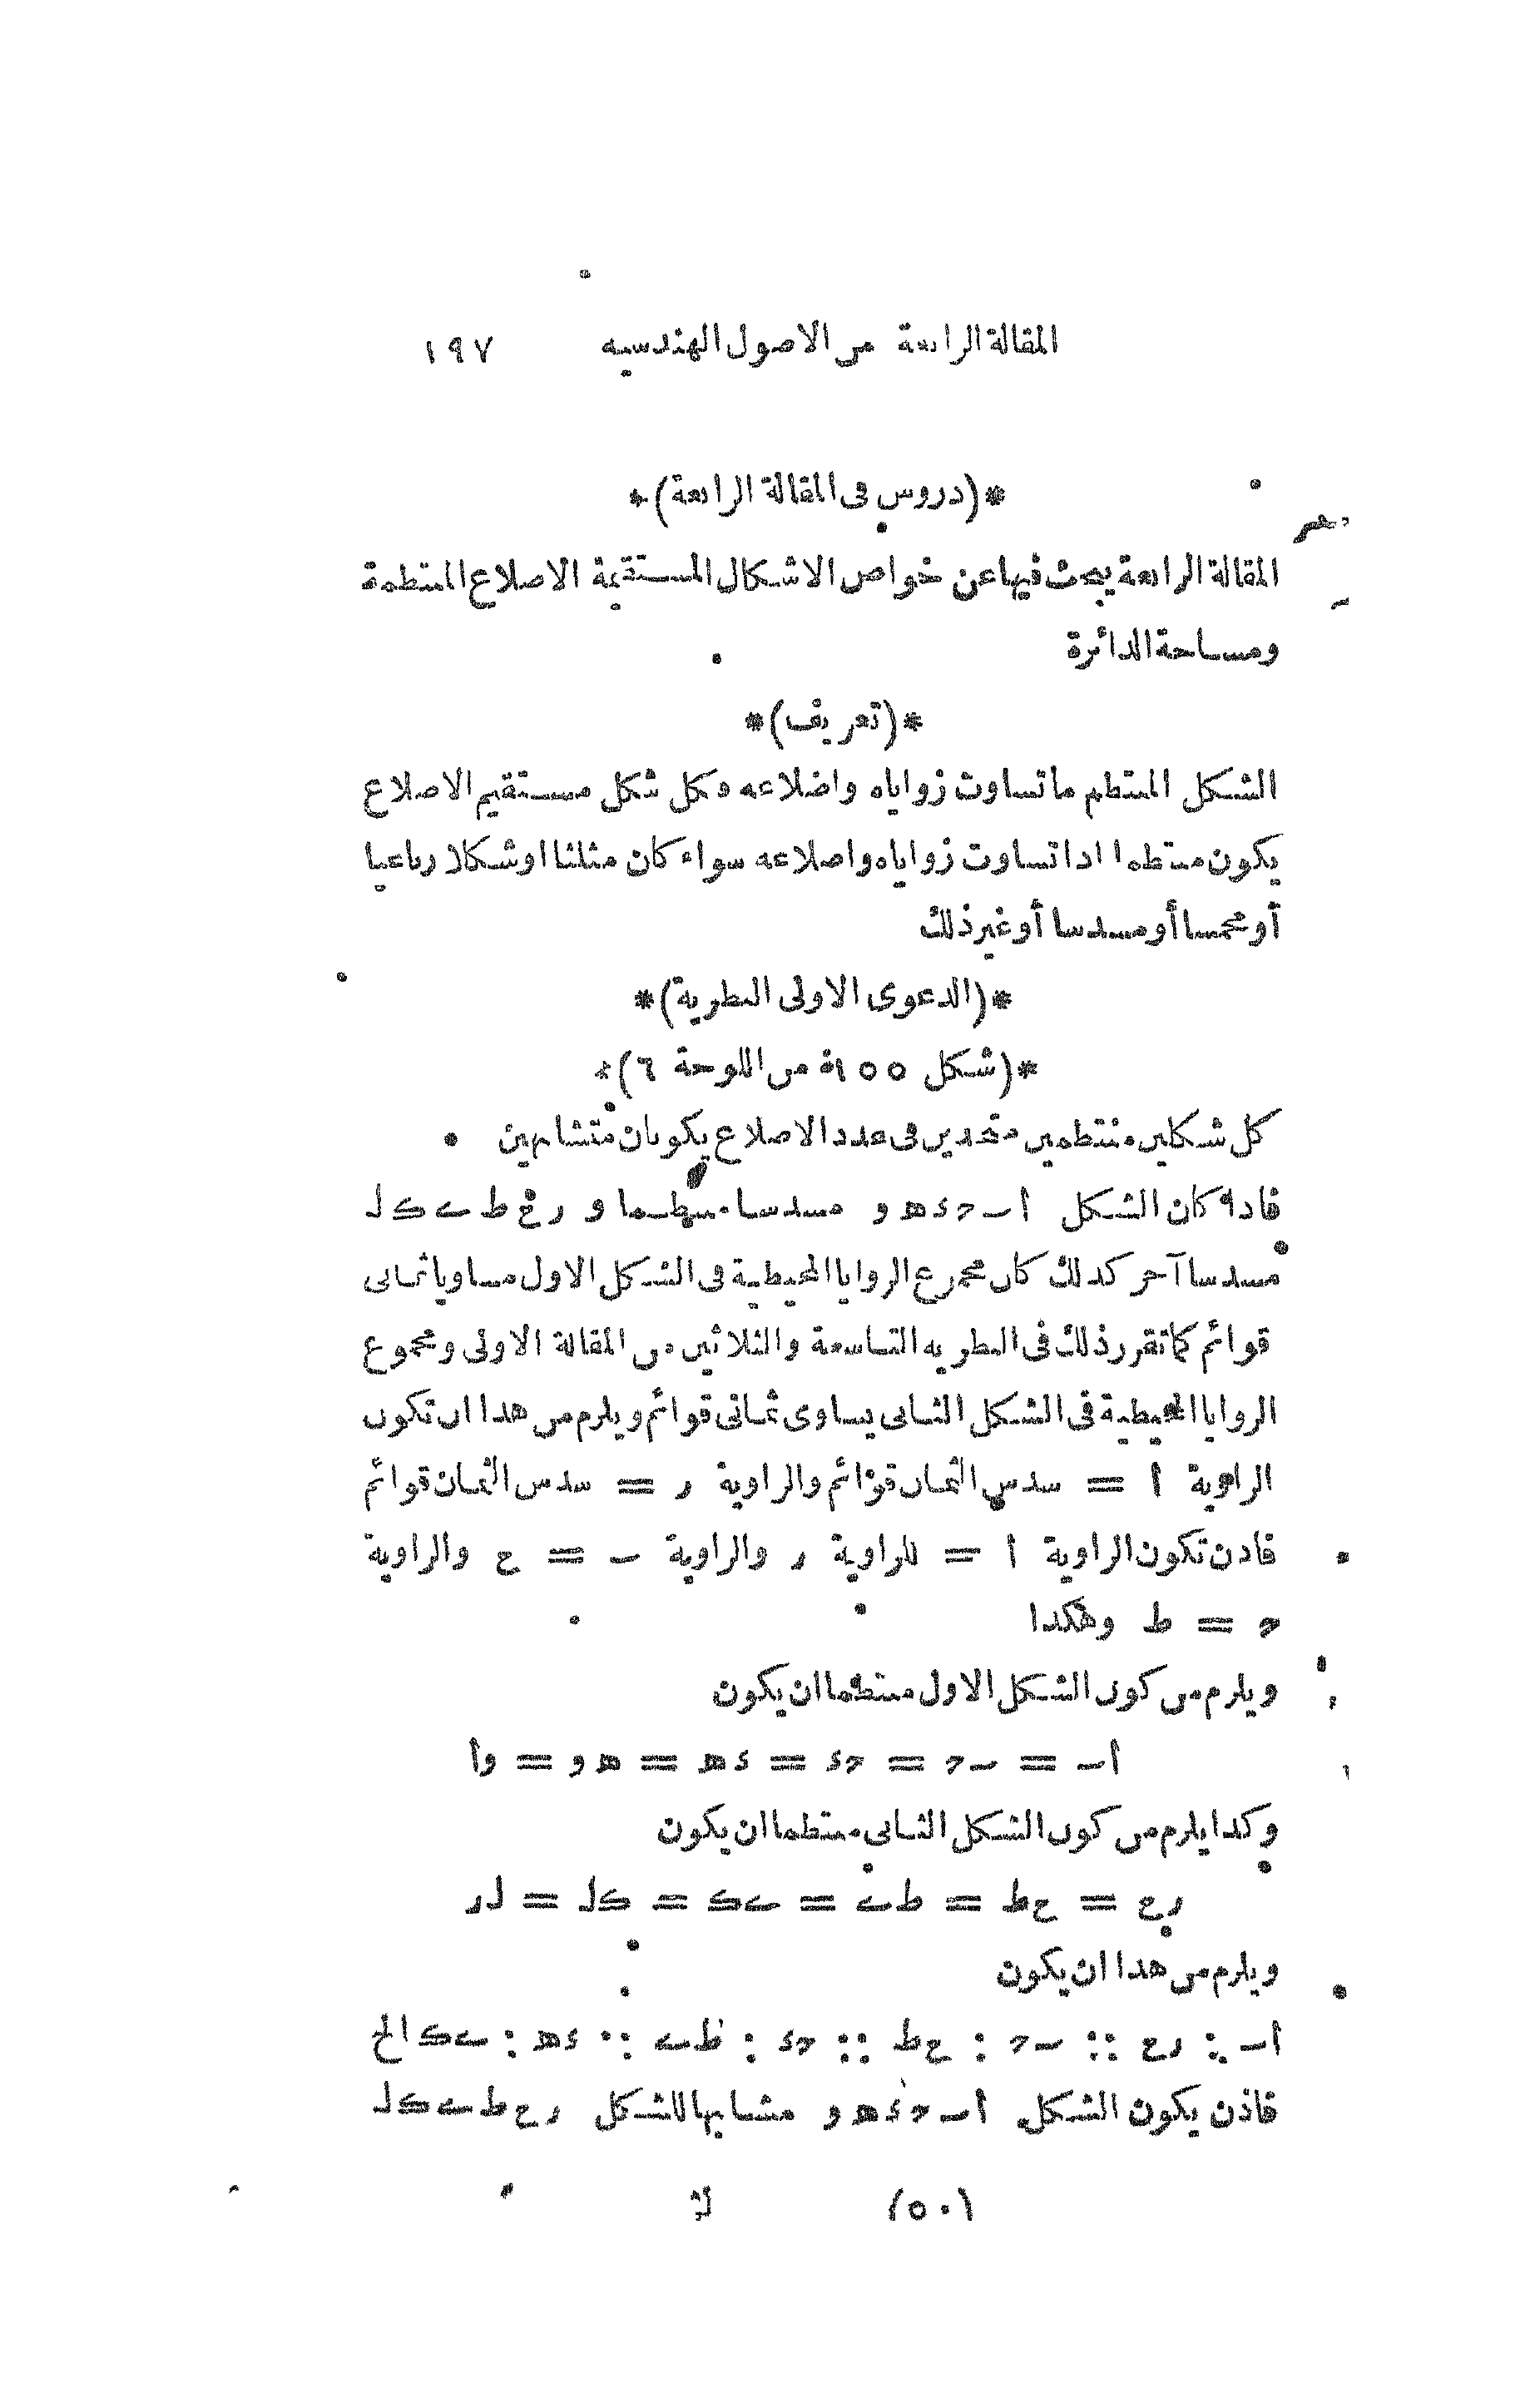 المقالة الرابعة من الاصول الهندسيه ١٩٧
*(دروس فى المقالة الرابعة)*
المقالة الرابعة يبحث فيها عن خواص الاشكال المستقيمة الاضلاع المنتظمة
ومساحة الدائرة
*(تعريف)*
الشكل المنتظم ما تساوت زواياه واضلاعه وكل شكل مستقيم الاضلاع
يكون منتظما اذا تساوت زواياه واضلاعه سواء كان مثلثا اوشكلا رباعيا
أو مخمسا أو مسدسا أو غير ذلك
*(الدعوى الاولى النظرية)*
*(شكل ١٥٥ من اللوحة ٦)*
كل شكلين منتظمين متحدين فى عدد الاضلاع يكونان متشابهين
فاذا كان الشكل اـحءهو مسدسا منتظما و رحطىكل
مسدسا آخر كذلك كان مجموع الزوايا المحيطية فى الشكل الاول مساويا ثمانى
قوائم كما تقرر ذلك فى النظريه التاسعة والثلاثين من المقالة الاولى ومجموع
الزوايا المحيطية فى الشكل الثانى يساوى ثمانى قوائم ويلزم من هذا ان تكون
الزاوية ا = سدس الثمان قوائم والزاوية ر = سدس الثمان قوائم
فاذن تكون الزاوية ا = للزاوية ر والزاوية ـ = ح والزاوية
ح = ط وهكذا
ويلزم من كون الشكل الاول منتظما ان يكون
اـ = ـح = حء = ءه = هو = وا
وكذا يلزم من كون الشكل الثانى منتظما ان يكون
رح = حط = طى = ىك = كل = لر
ويلزم من هذا ان يكون
اـ : رح :: ـح : حط :: حء : طى :: ءه : ىك الخ
فاذن يكون الشكل اـحءهو مشابها للشكل رحطىكل
(٥٠) لث